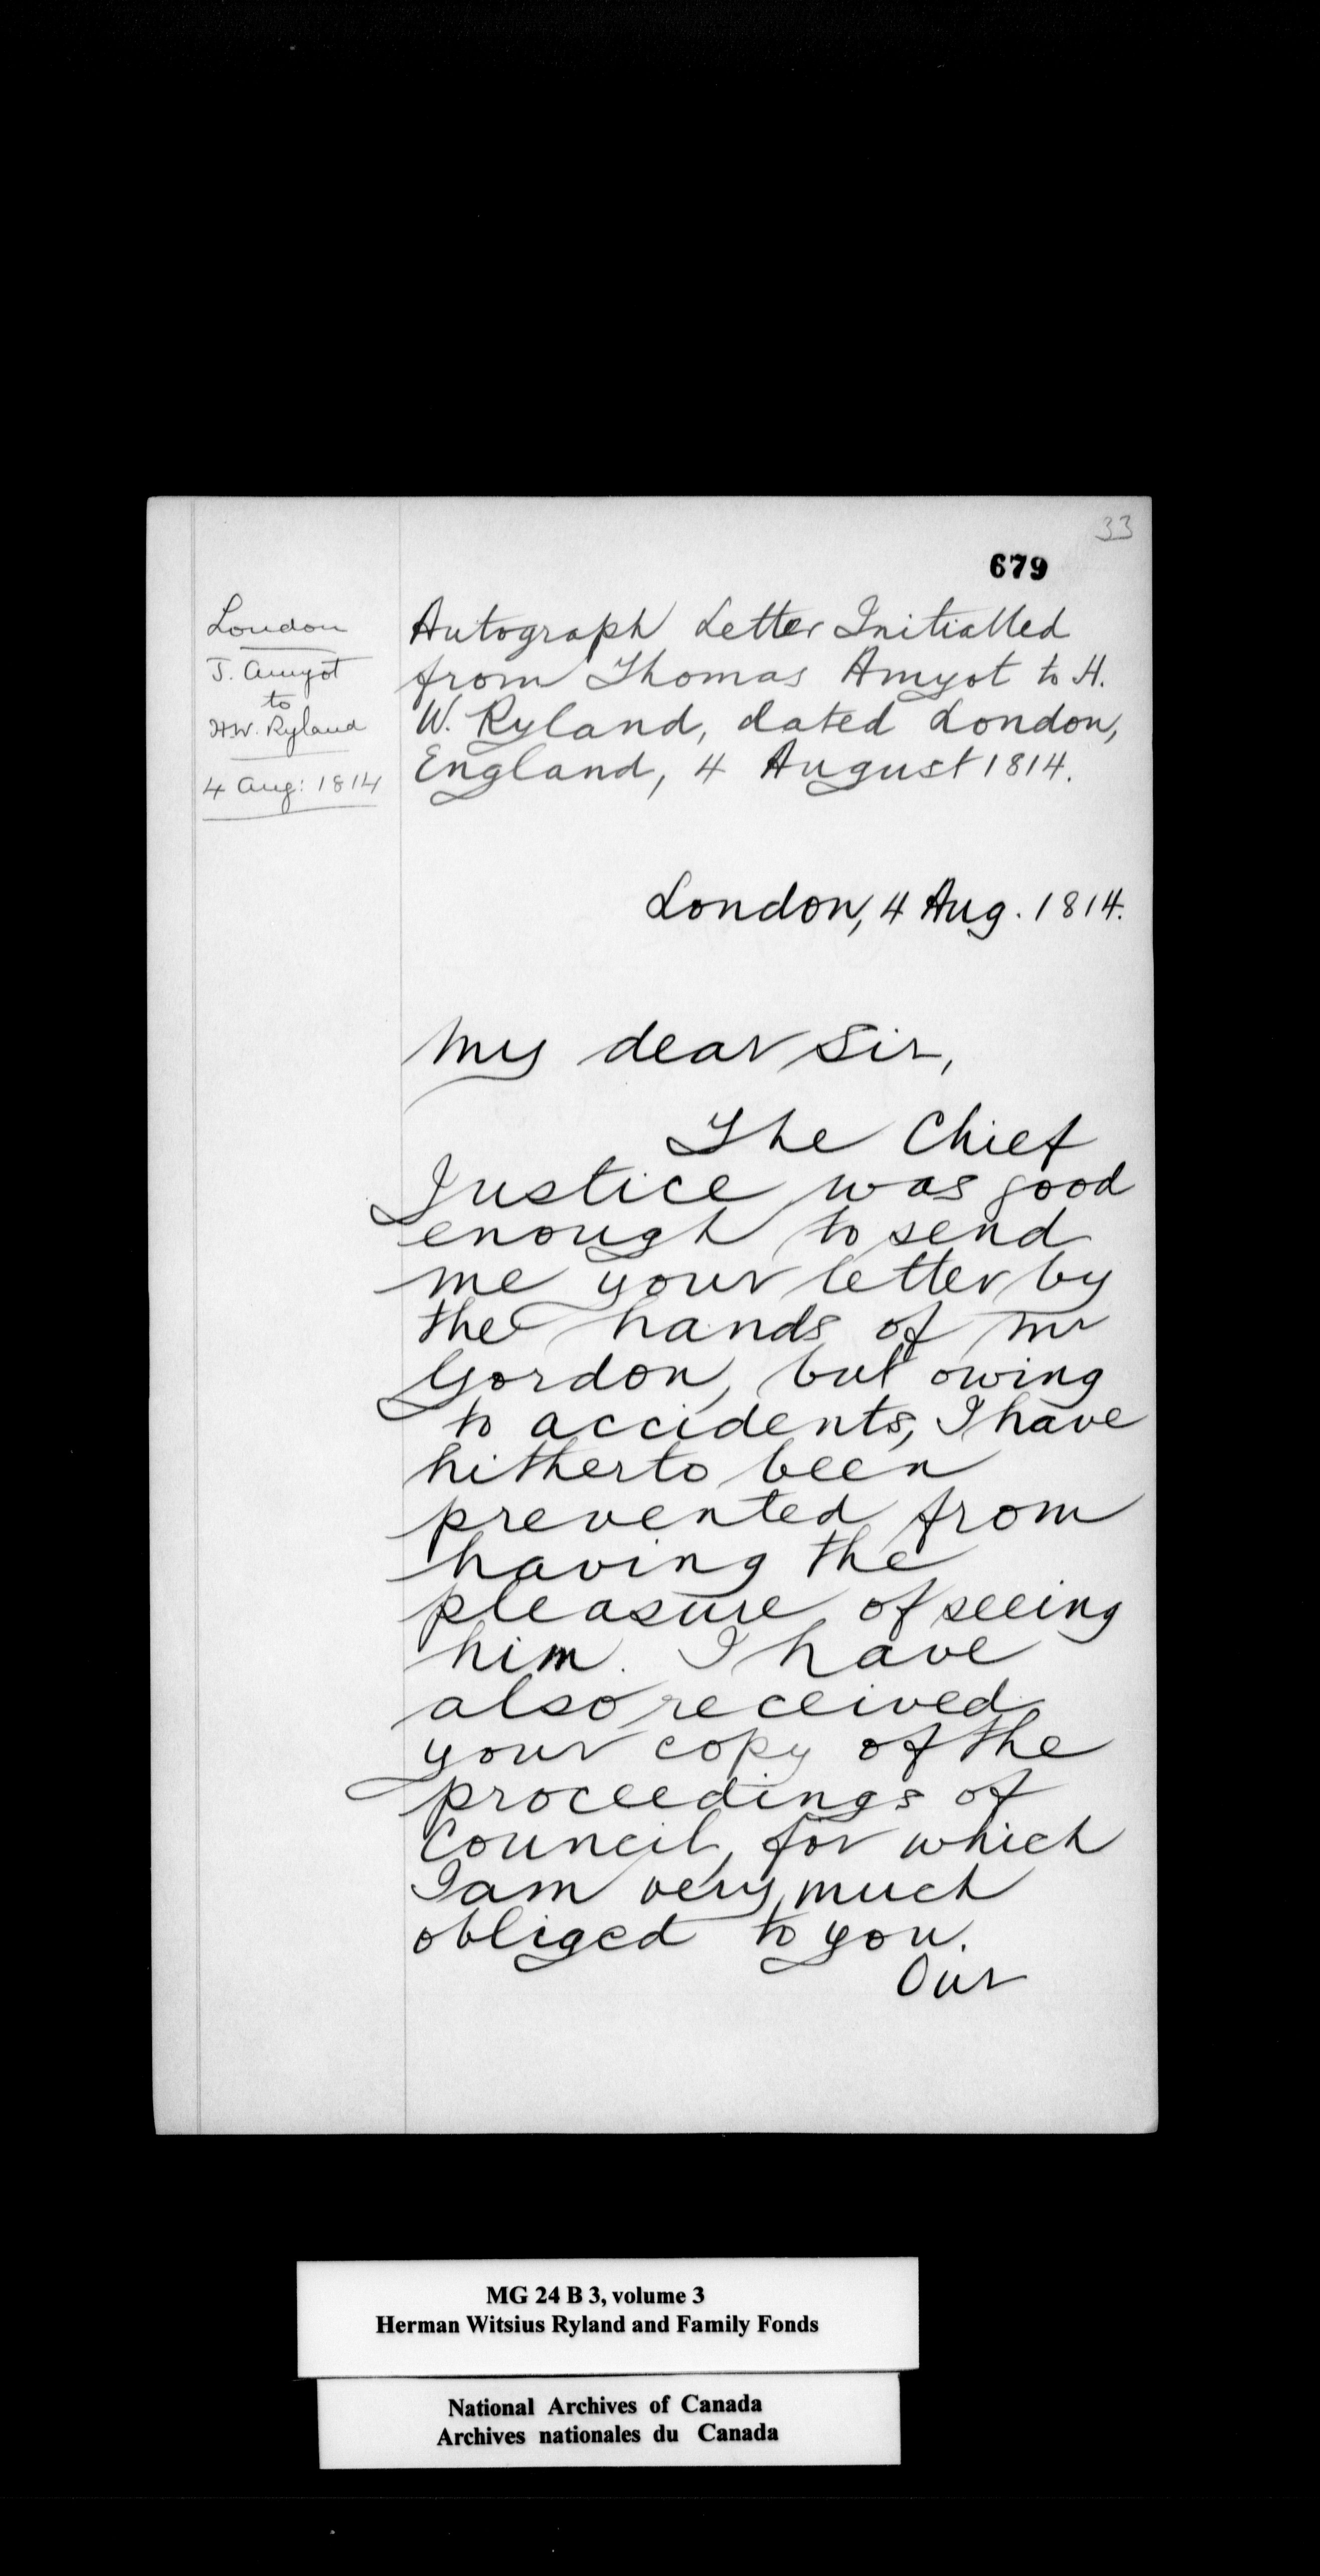 33
679
London
T. Amyot
to
H.W. Ryland
4 Aug: 1814
Autograph Letter Initialled
from Thomas Amyot to H.
W. Ryland, dated London,
England, 4 August 1814.
London, 4 Aug. 1814.
My dear Sir,
The Chief
Justice was good
enough to send
me your letter by
the hands of Mr
Gordon, but owing
to accidents, I have
hitherto been
prevented from
having the
pleasure of seeing
him. I have
also received
your copy of the
proceedings of
Council, for which
I am very much
obliged to you.
Our
MG 24 B 3, volume 3
Herman Witsius Ryland and Family Fonds
National Archives of Canada
Archives nationales du Canada